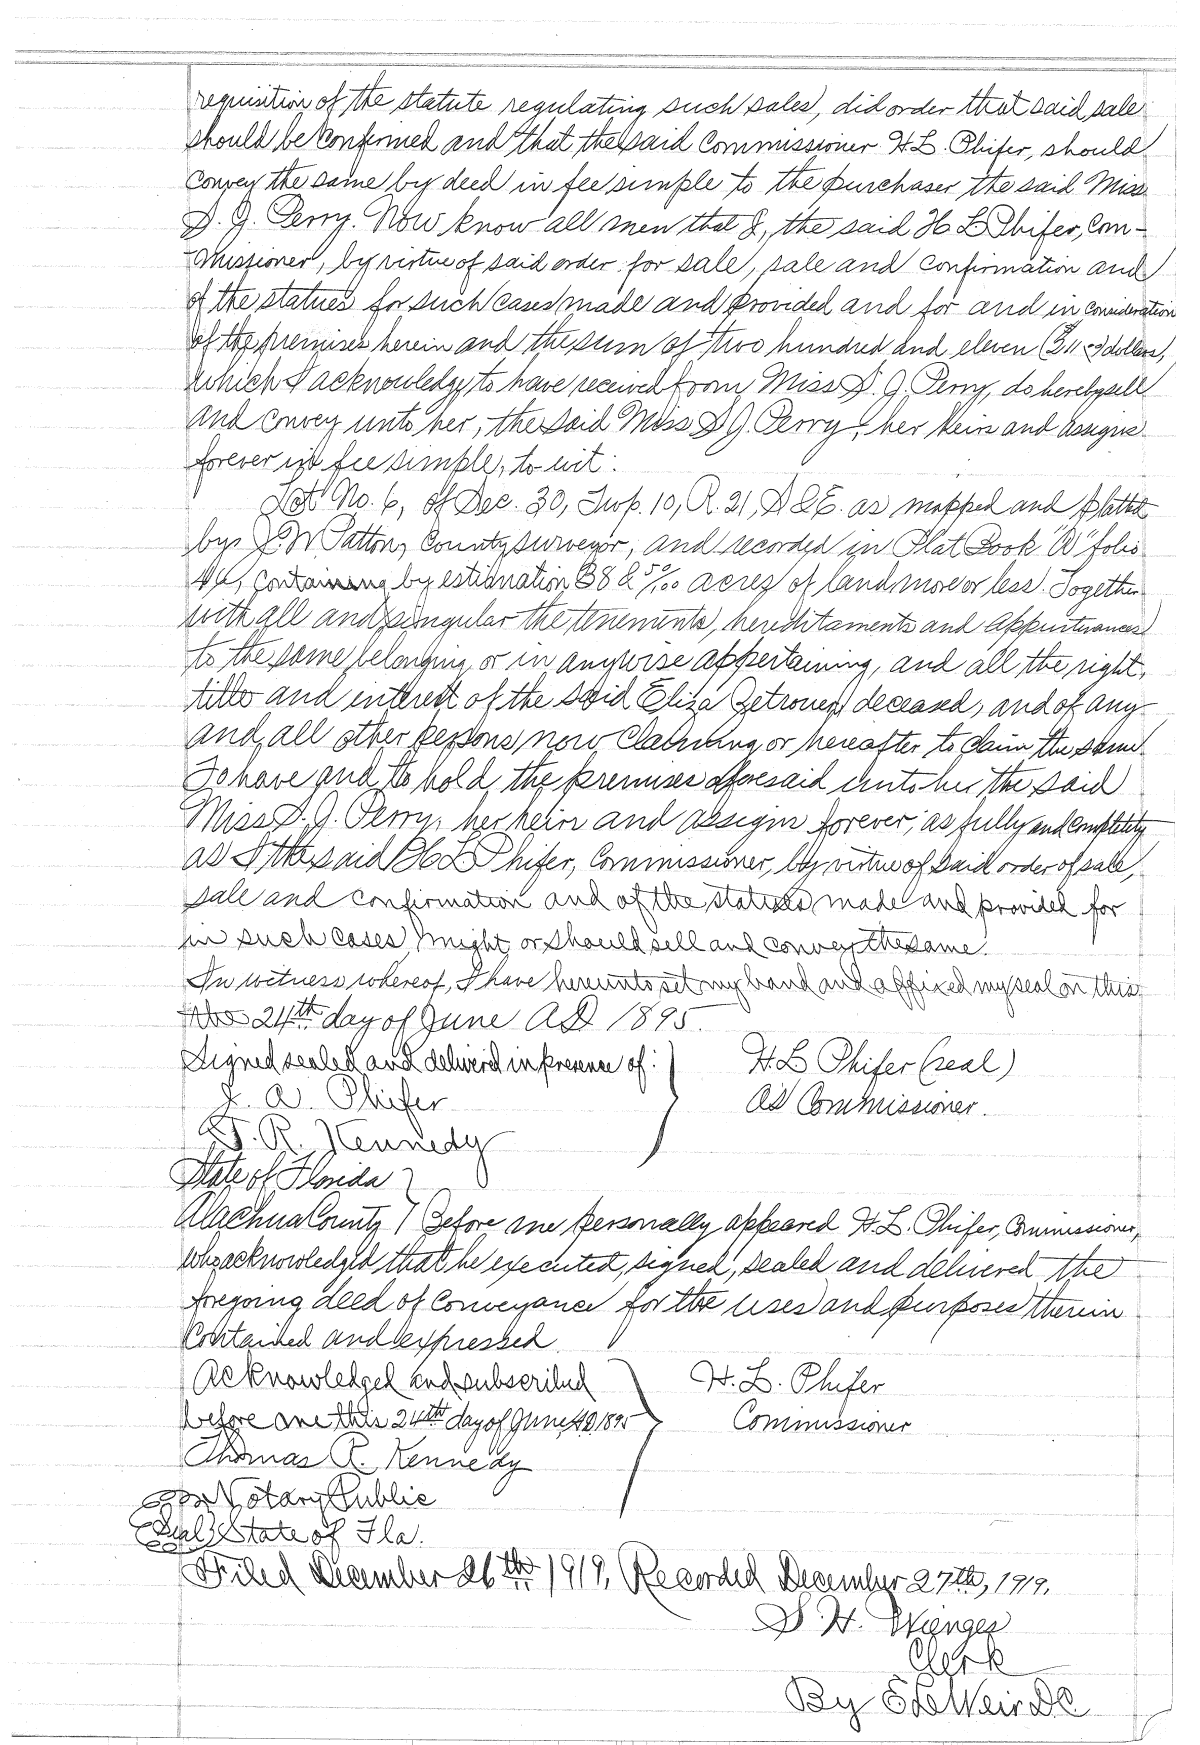 requisition of the statute regulating such sales, did order that said sale
should be confirmed and that the said Commissioner H.L. Phifer, should
convey the same by deed in fee simple to the purchaser the said Miss
S. J. Perry. Now know all men that I, the said H L Phifer, Com-
missioner, by virtue of said order for sale, sale and confirmation and
of the statues for such cases made and provided and for and in consideration
of the premises herein and the sum of two hundred and eleven dollars,
which I acknowledge to have received from Miss S. J. Perry, do hereby sell
and convey unto her, the said Miss S J. Perry, her heirs and assigns
forever in fee simple, to wit:
Lot No. 6, of Sec. 30, Twp. 10, R. 21, S & E. as mapped and platted
by J. W. Patton, County surveyor, and recorded in Plat Book "A" folio
containing by estimation 38 & 50/100 acres of land more or less. Together
with all and singular the tenements, hereditaments and appurtenances
to the same belonging or in anywise appertaining, and all the right,
title and interest of the said Eliza Zetrouer, deceased, and of any
and all other persons now claiming or hereafter to claim the same.
To have and to hold the premises aforesaid unto her the said
Miss S. J. Perry, her heirs and assigns forever, as fully and completely
as I the said H L Phifer, Commissioner, by virtue of said order of sale,
sale and confirmation and of the statutes made and provided for
in such cases, might or should sell and convey the same.
In witness whereof, I have hereunto set my hand and affixed my seal on this
the 24th day of June AD 1895.
Signed sealed and delivered in presence of: } H. L Phifer (seal)
J. A. Phifer As Commissioner.
T. R. Kennedy
State of Florida }
Alachua County } Before me personally appeared H.L. Phifer, Commissioner,
who acknowledged that he executed, signed, sealed and delivered the
foregoing deed of Conveyance for the uses and purposes therein
contained and expressed
Acknowledged and subscribed } H. L. Phifer
before me this 24th day of June, AD 1895 Commissioner
Thomas R. Kennedy
Notary Public
(Seal) State of Fla.
Filed December 26th 1919, Recorded December 27th, 1919.
S. H. Wienges
Clerk
By E L Weir DC